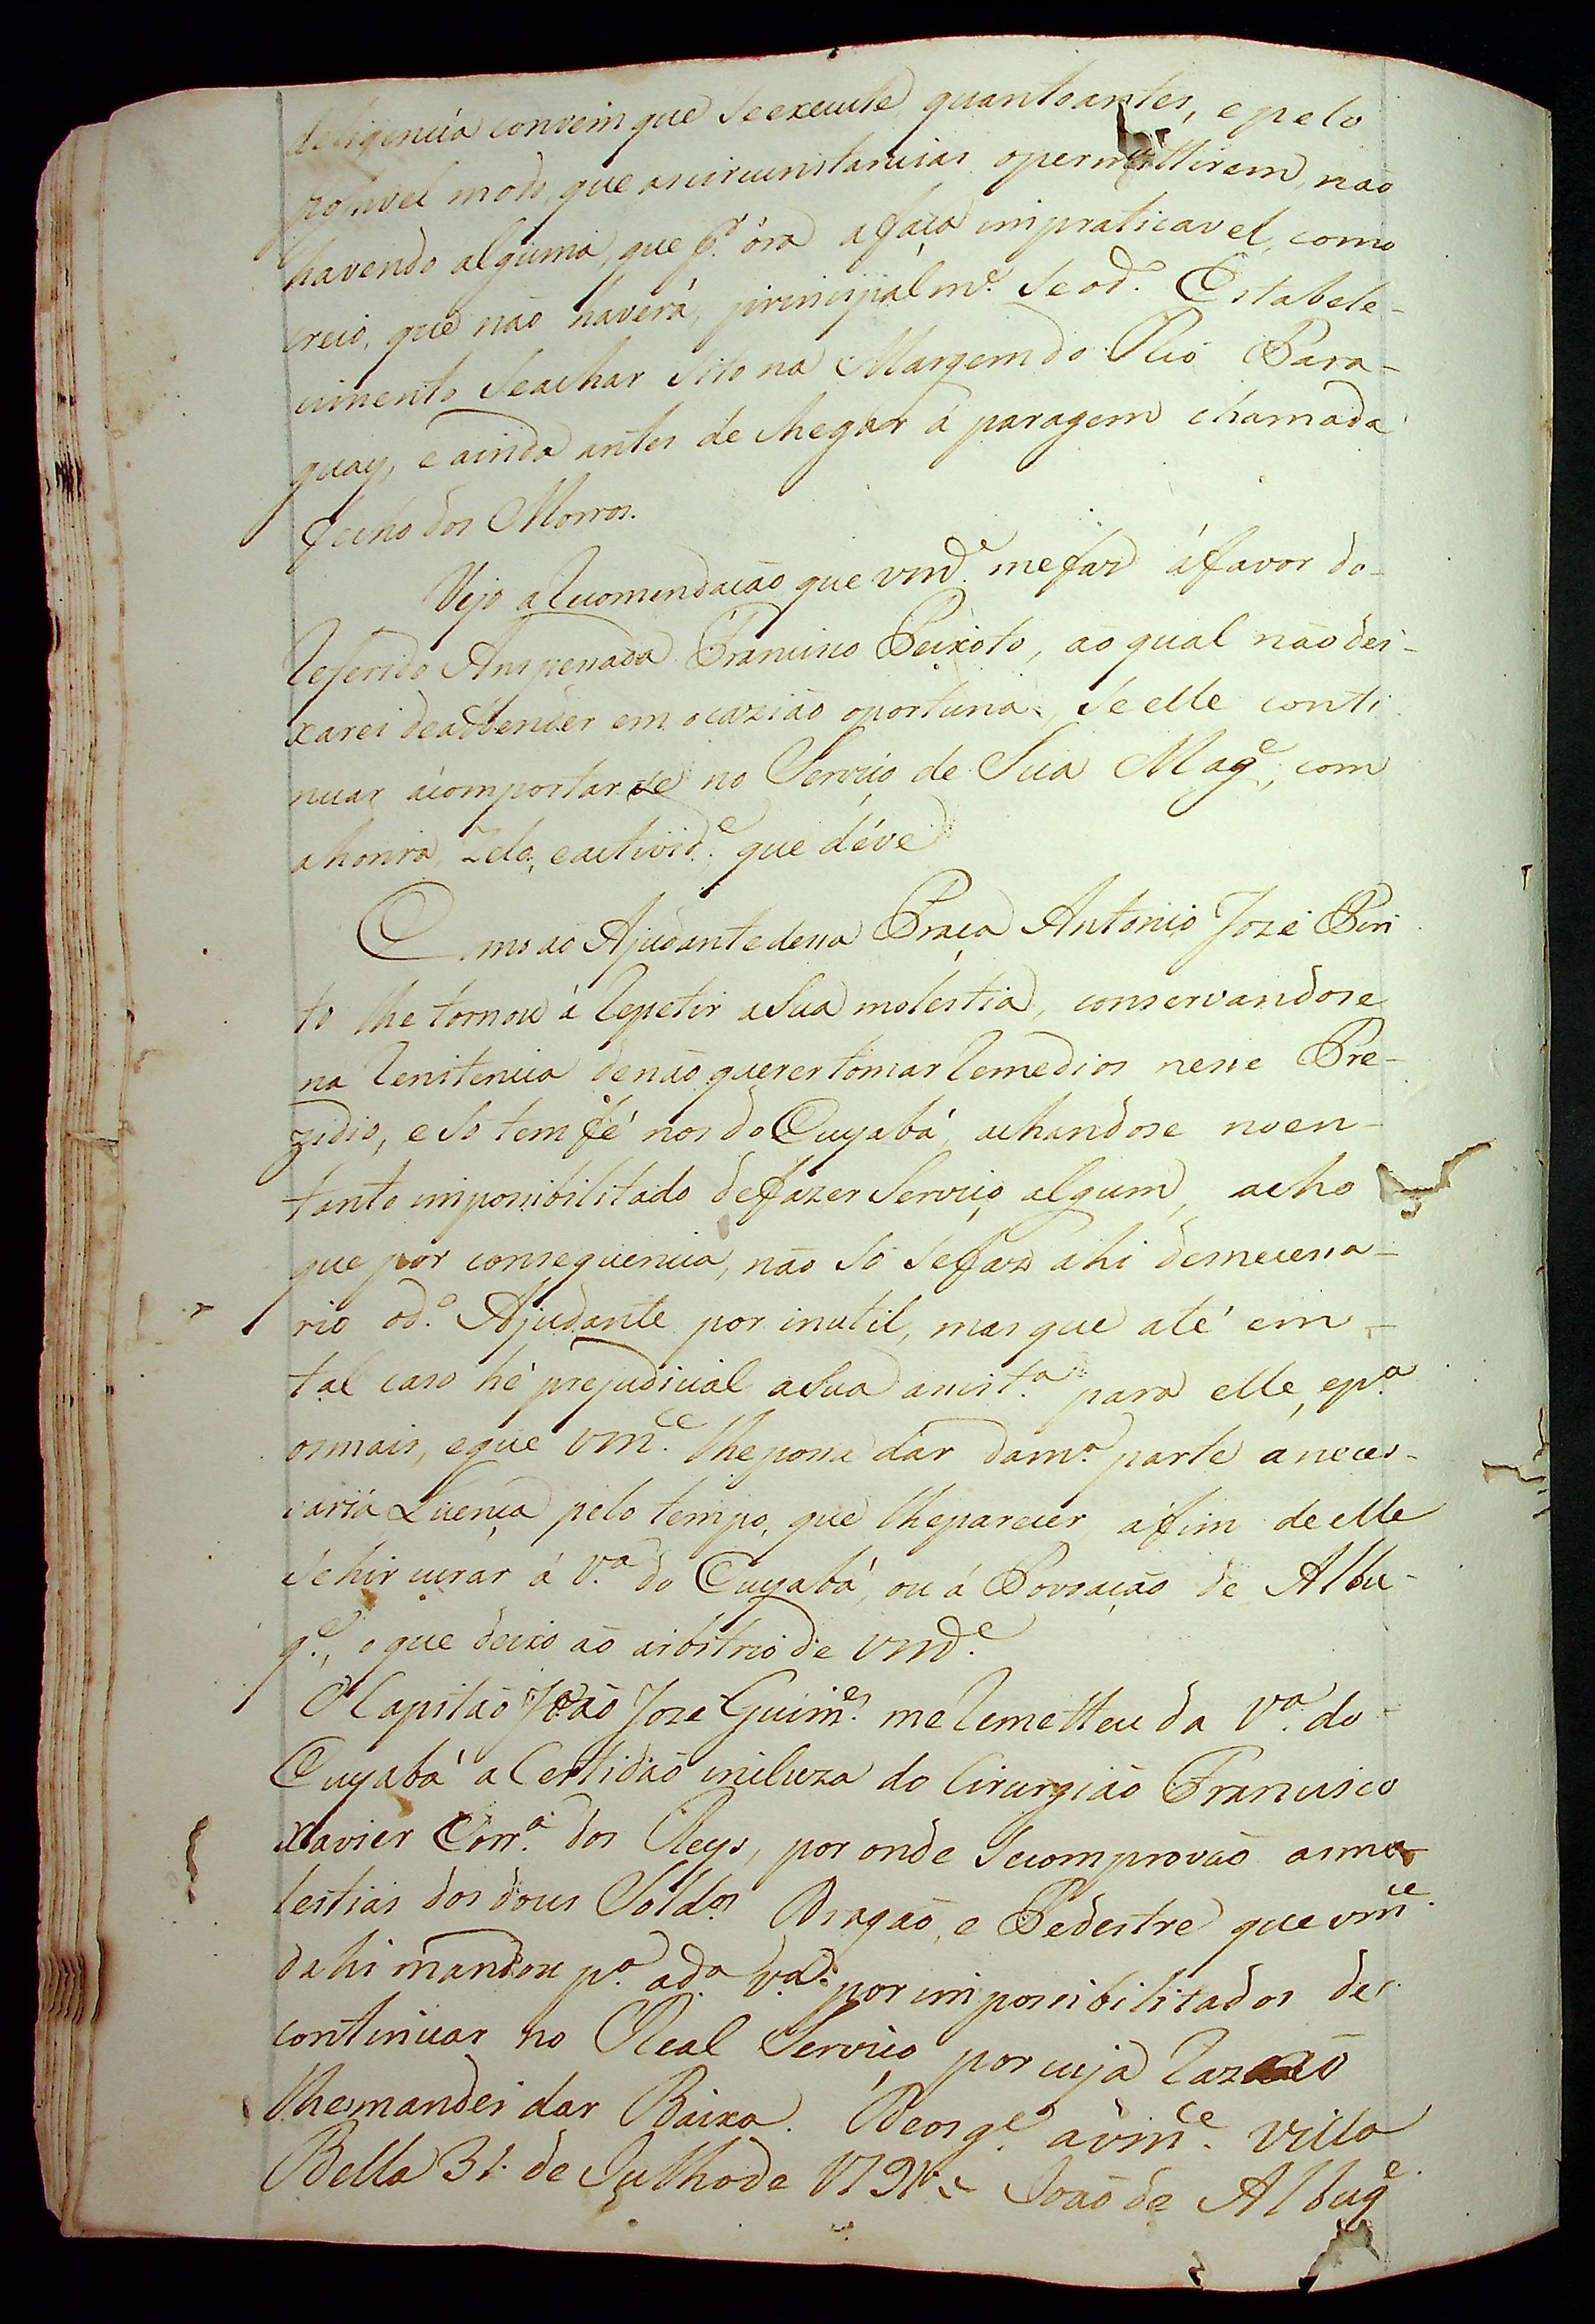 deligencia convem que Seexecute quanto antes, epelo
posivel modo, que ascircunstancias opermittirem, não
havendo alguma, que p.ʳ óra afaça impraticavel, como
creio, que não haverá, principalm.ᵉ Seod.º Estabele-
cimento Seachar Sito na Margem do Rio Para-
guay, e ainda antes de chegar á paragem chamada
Fecho dos Morros.
Vejo aRecomendacão que vmc.ᵉ mefaz áfavor do-
Referido Anspessada Francisco Peixoto, aõ qual não dei-
xarei deattender em ocazião oportuna, Seelle conti
nuar ácomportarse no Serviço de Sua Mag.ᵉ, com
ahonra, Zelo, eactivid.ᵉ que déve
Como aõ Ajudante dessa Praça Antonio Jozé Pin
to lhe tornou á Repetir aSua molestia, conservandose
na Renitencia denão querer tomar Remedios nesse Pre-
zidio, e So tem fé nos do Cuyabá, achandose noen-
tanto imposibilitado defazer Serviço algum, acho
que por consequencia, não Só Sefaz ahi desnecessa-
rio od.º Ajudante por inutil, mas que até em-
tal caso hé prejudicial aSua asist.ª para elle, ep.ª
osmais, eque Vm.ᶜᵉ lhepossa dar dam.ª parte aneces-
caria Licença pelo tempo, que lheparecer, áfim de elle
Sehir curar á V.ª do Cuyabá, ou á Povoação de Albu-
q.ᵉ, oque deixo aõ arbitrio de Vmc.ᵉ
O Capitão João Jozé Guim.ᵉˢ meRemetteu da V.ª do
Cuyabá a Certidão incluza do Cirurgião Francisco
Xavier Corr.ª dos Reys, por onde Secomprovão asmo-
lestias dos dous Sold.ᵒˢ Dragão, e Pedestre que vm.ᶜᵉ
dahi mandou p.ª ad.ª V.ª por imposibilitados de
continuar no Real Serviço, por cuja Razaõ
lhesmandei dar Baixa. Deos g.ᵉ aVm.ᶜᵉ Villa
Bella 31. de Julho de 1791 João de Albuq.ᵉ